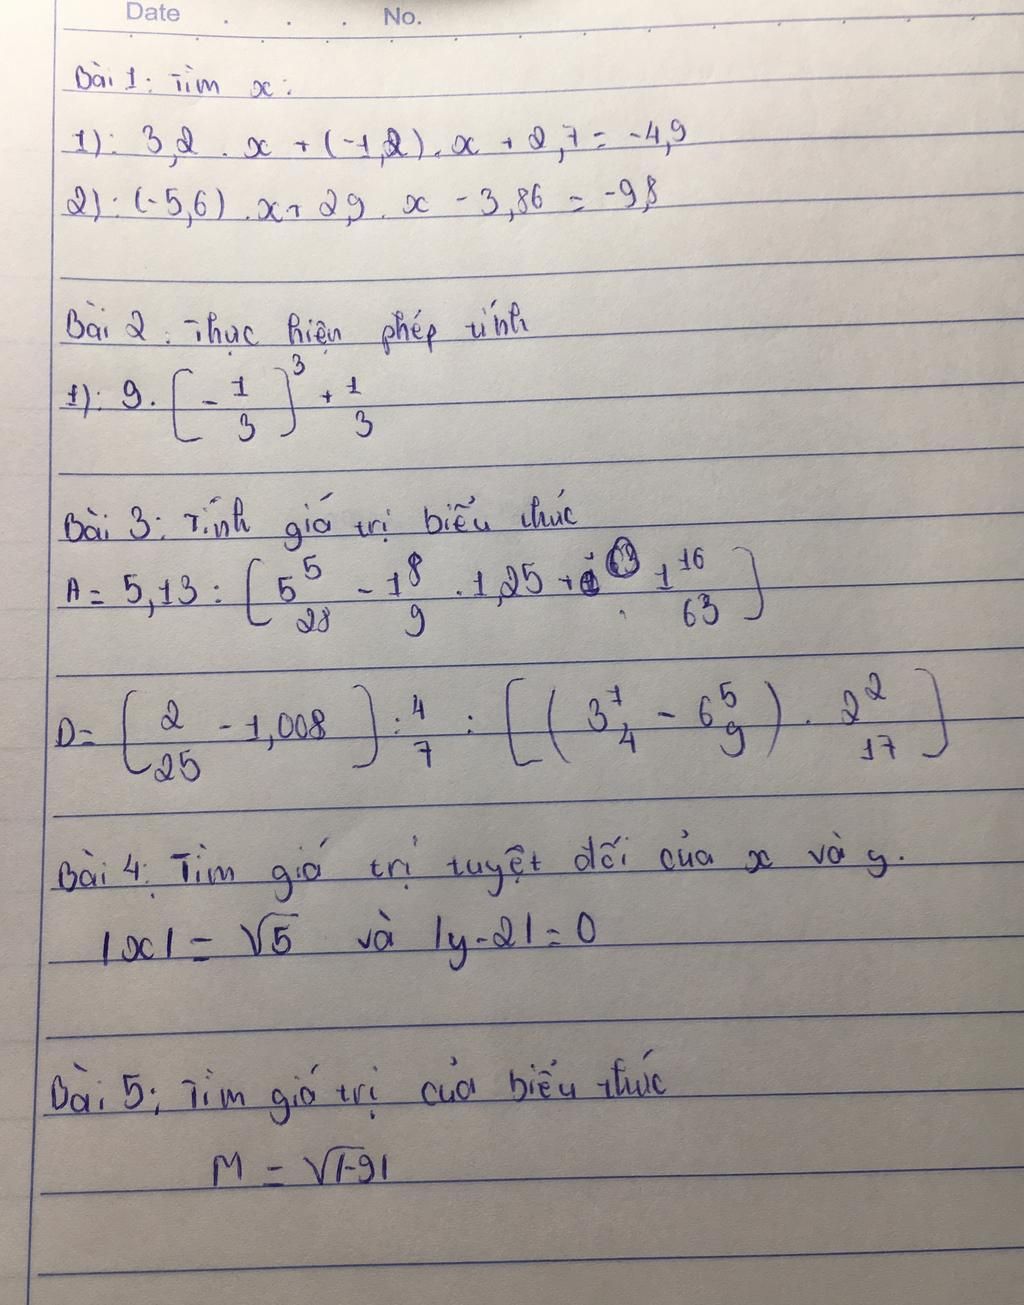 Date . . . No.
Bài 1: Tìm x:
1): 3,2 . x + (-1,2) . x + 2,7 = -4,9
2): (-5,6) . x + 2,9 . x - 3,86 = -9,8
Bài 2: Thực hiện phép tính
1): 9 . [-1/3]³ + 1/3
Bài 3: Tính giá trị biểu thức
A = 5,13 : [5 5/28 - 1 8/9 . 1,25 + 1 16/63]
D = [2/25 - 1,008] : 4/7 : [(3 1/4 - 6 5/9) . 2 2/17]
Bài 4: Tìm giá trị tuyệt đối của x và y.
|x| = √5 và |y-2| = 0
Bài 5: Tìm giá trị của biểu thức
M = √|-9|